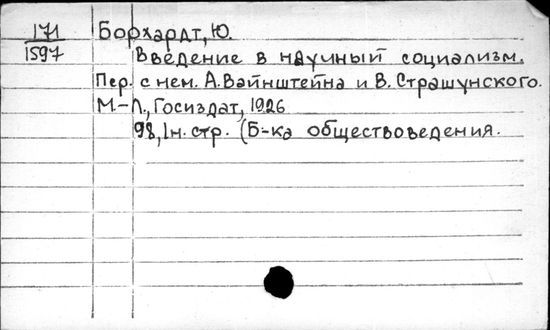 171 Борхардт, Ю.
1597 Введение в научный социализм.
Пер. с нем. А. Вайнштейна и В. Страшунского.
М.-Л., Госиздат, 1926
98, 1н. стр. (Б-ка обществоведения.